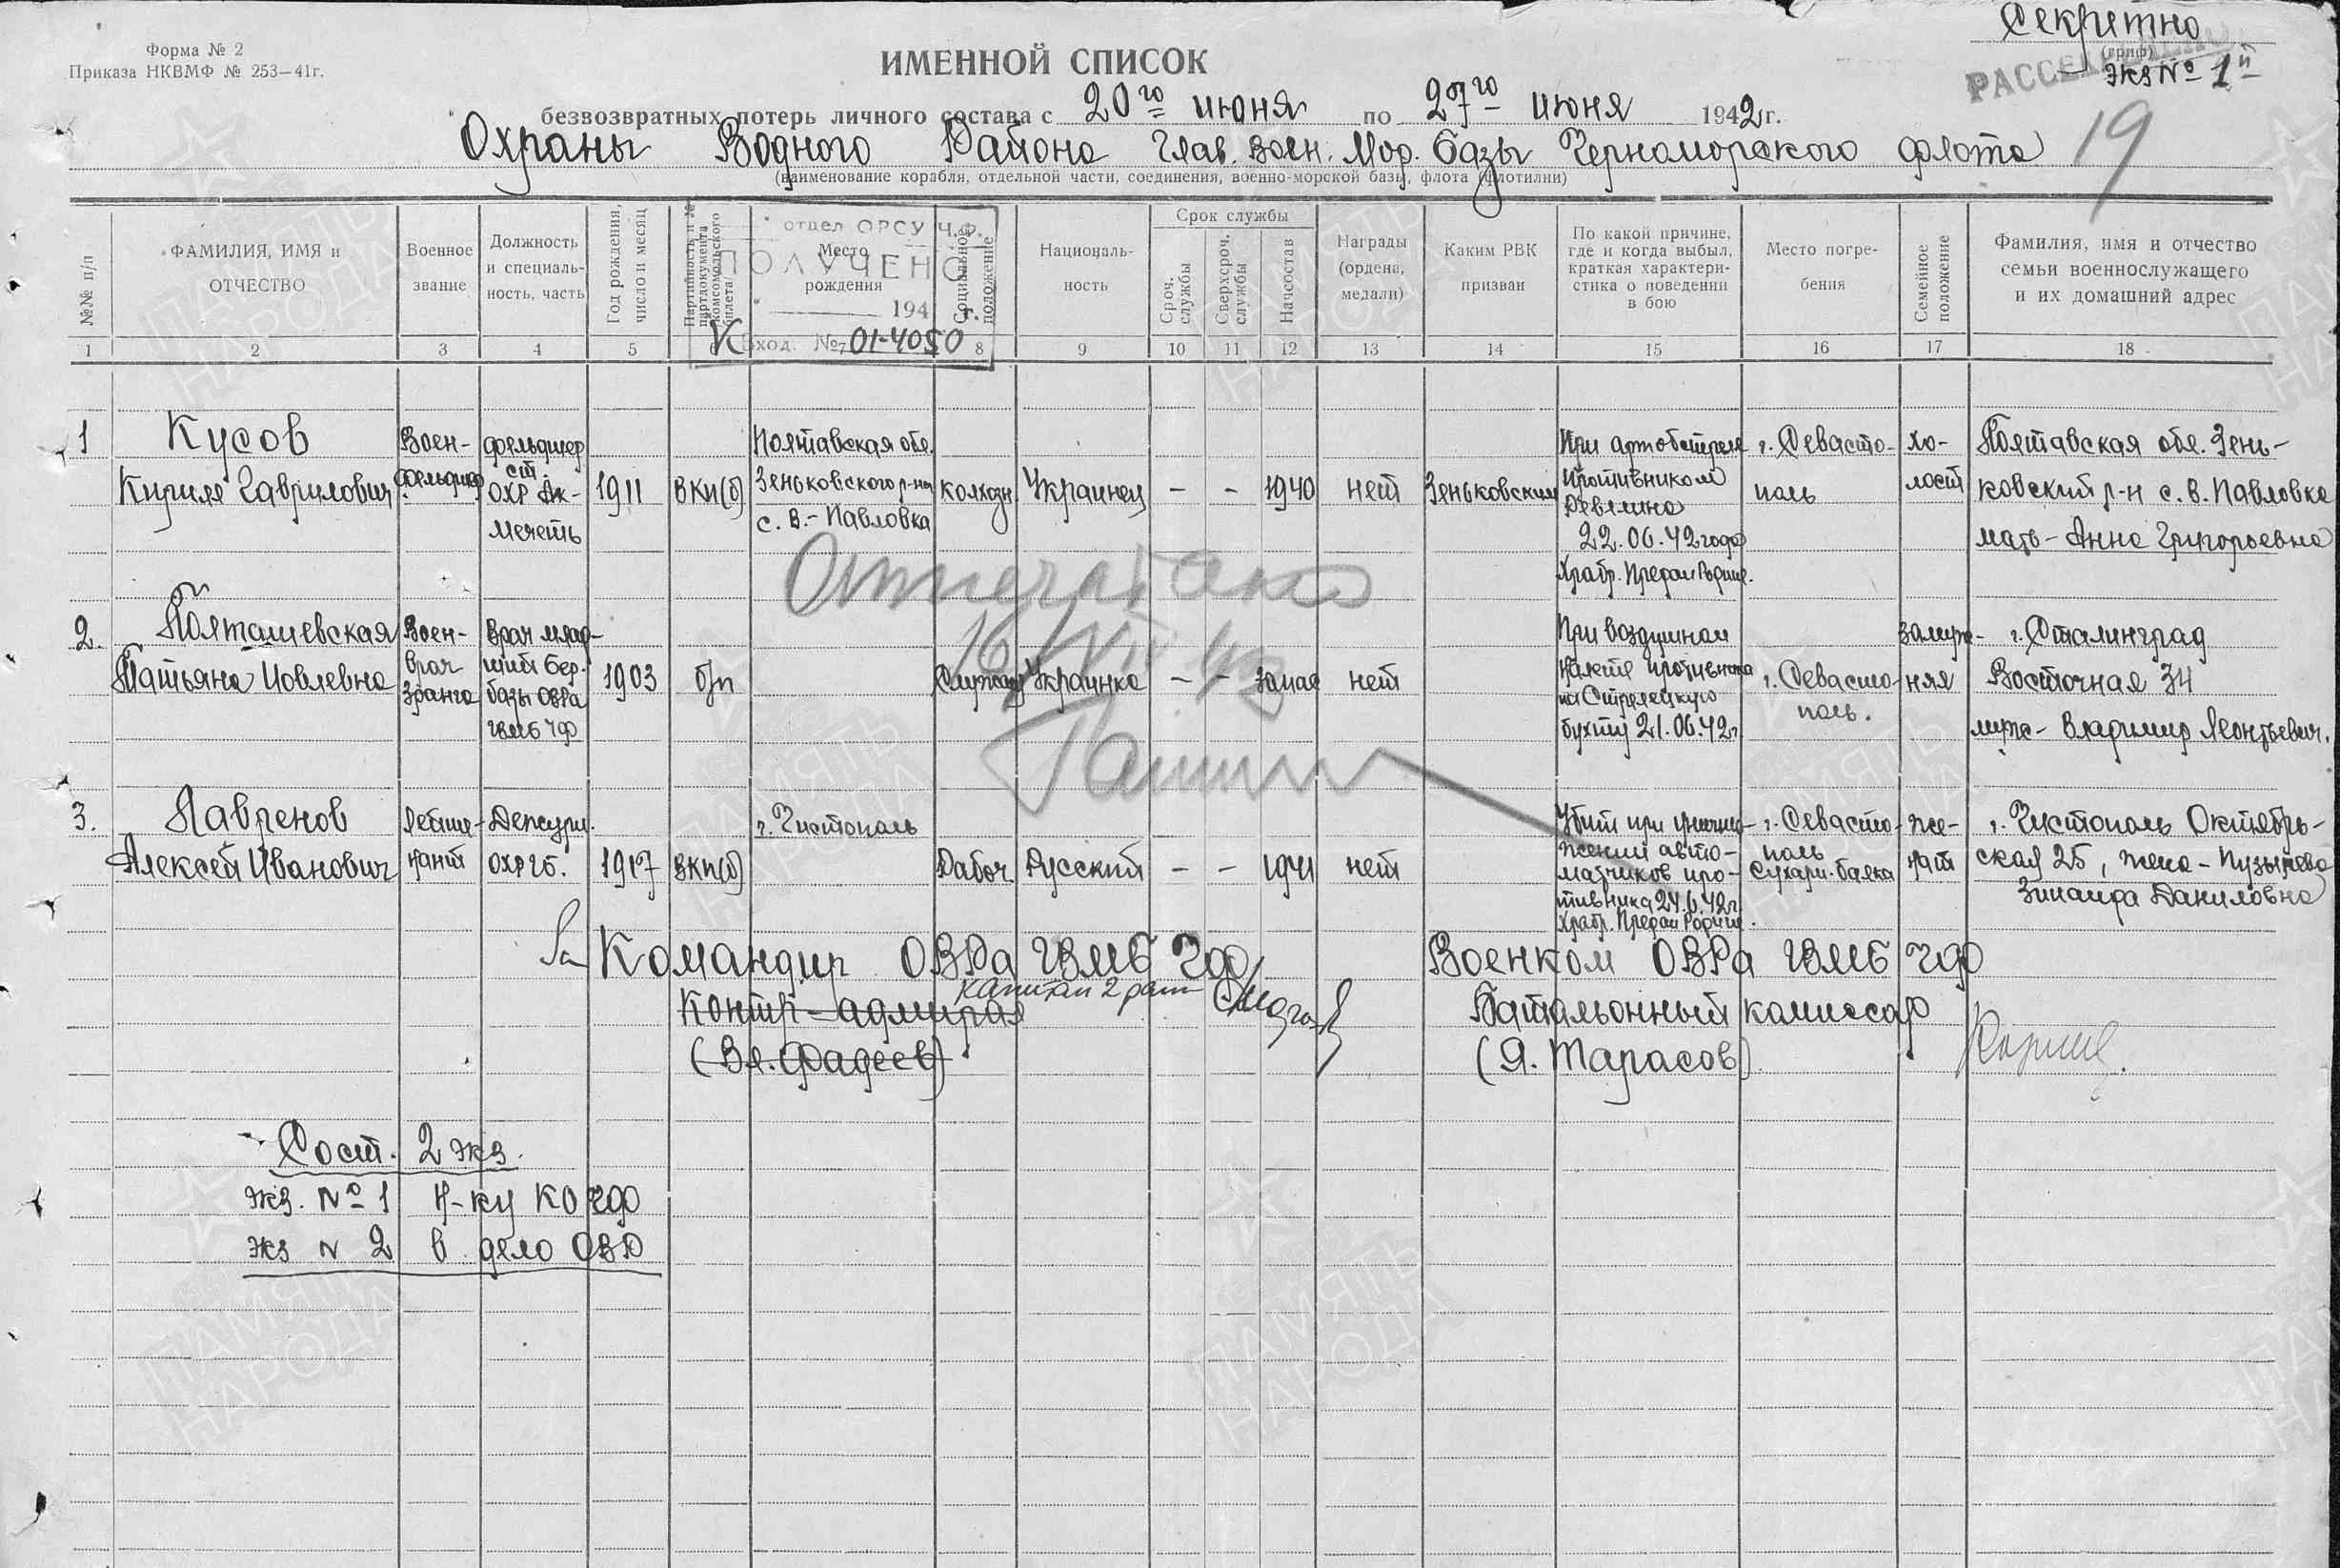 Форма № 2
Приказа НКВМФ № 253—41г.
Секретно
(гриф)
РАССЕКРЕЧЕНО
экз № 1й
ИМЕННОЙ СПИСОК
безвозвратных потерь личного состава с 20го июня по 27го июня 1942г.
Охраны Водного Района Глав. Воен. Мор. Базы Черноморского флота
19
(наименование корабля, отдельной части, соединения, военно-морской базы, флота (флотилии)
№№ п/п
ФАМИЛИЯ, ИМЯ и ОТЧЕСТВО
Военное звание
Должность и специаль-ность, часть
Год рождения, число и месяц
Партийность и № партдокумента комсомольского билета
Место рождения
Социальное положение
Националь-ность
Срок службы
Сроч. службы
Сверхсроч. службы
Начсостав
Награды (ордена, медали)
Каким РВК призван
По какой причине, где и когда выбыл, краткая характери-стика о поведении в бою
Место погре-бения
Семейное положение
Фамилия, имя и отчество семьи военнослужащего и их домашний адрес
отдел ОРСУ Ч.Ф.
ПОЛУЧЕНО
194 г.
Вход. № 01-4050
1 2 3 4 5 6 7 8 9 10 11 12 13 14 15 16 17 18
1
Кусов
Кирилл Гаврилович
Воен-
фельдшер
фельдшер
ст.
ОХР Ак-
Мечеть
1911
ВКП(б)
Полтавская обл.
Зеньковского р-на
с. В.-Павловка
колхозн
Украинец
—
—
1940
нет
Зеньковским
При артобстреле
противником
22.06.42 года
Храбр. Предан Родине.
г. Севасто-
поль
хо-
лост
Полтавская обл. Зень-
ковский р-н с. В. Павловка
мать - Анна Григорьевна
Отпечатано
2.
Полташевская
Татьяна Иовлевна
Воен-
врач
3ранга
Врач млад-
ший бер.
базы ОВРа
ГВМБ ЧФ
1903
б/п
Служащ
Украинка
—
—
запас
нет
При воздушном
налете противника
на Стрелецкую
бухту 21.06.42г
г. Севасто-
поль.
замуж-
няя
г. Сталинград
Восточная 34
муж - Владимир Леонтьевич.
3.
Лавренов
Алексей Иванович
Лейте-
нант
Дежурн.
ОХР ГБ.
1917
ВКП(б)
г. Чистополь
Рабоч.
Русский
—
—
1941
нет
Убит при уничто-
жении авто-
матчиков про-
тивника 24.6.42г
Храбр. Предан Родине.
г. Севасто-
поль
Сухарн. балка
же-
нат
г. Чистополь Октябрь-
ская 25, жена - Пузырева
Зинаида Даниловна
За Командир ОВРа ГВМБ ЧФ
капитан 2 ранг
Контр-адмирал
(Вл. Фадеев)
Военком ОВРа ГВМБ ЧФ
Батальонный комиссар
(Я. Тарасов)
Сост. 2 экз.
экз. № 1 Н-ку КО ЧФ
экз N 2 в дело ОВЮ
ПАМЯТЬ НАРОДА